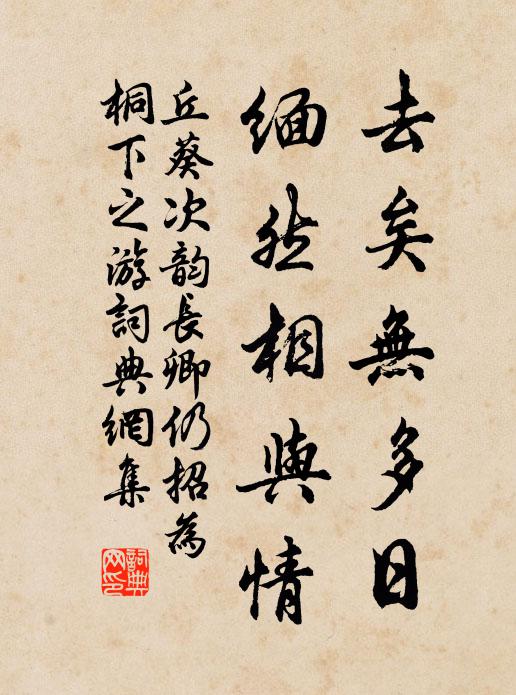 去矣無多日
緬然相與情
丘葵次韵長卿仍招為
桐下之游詞典網集
詞典
网印